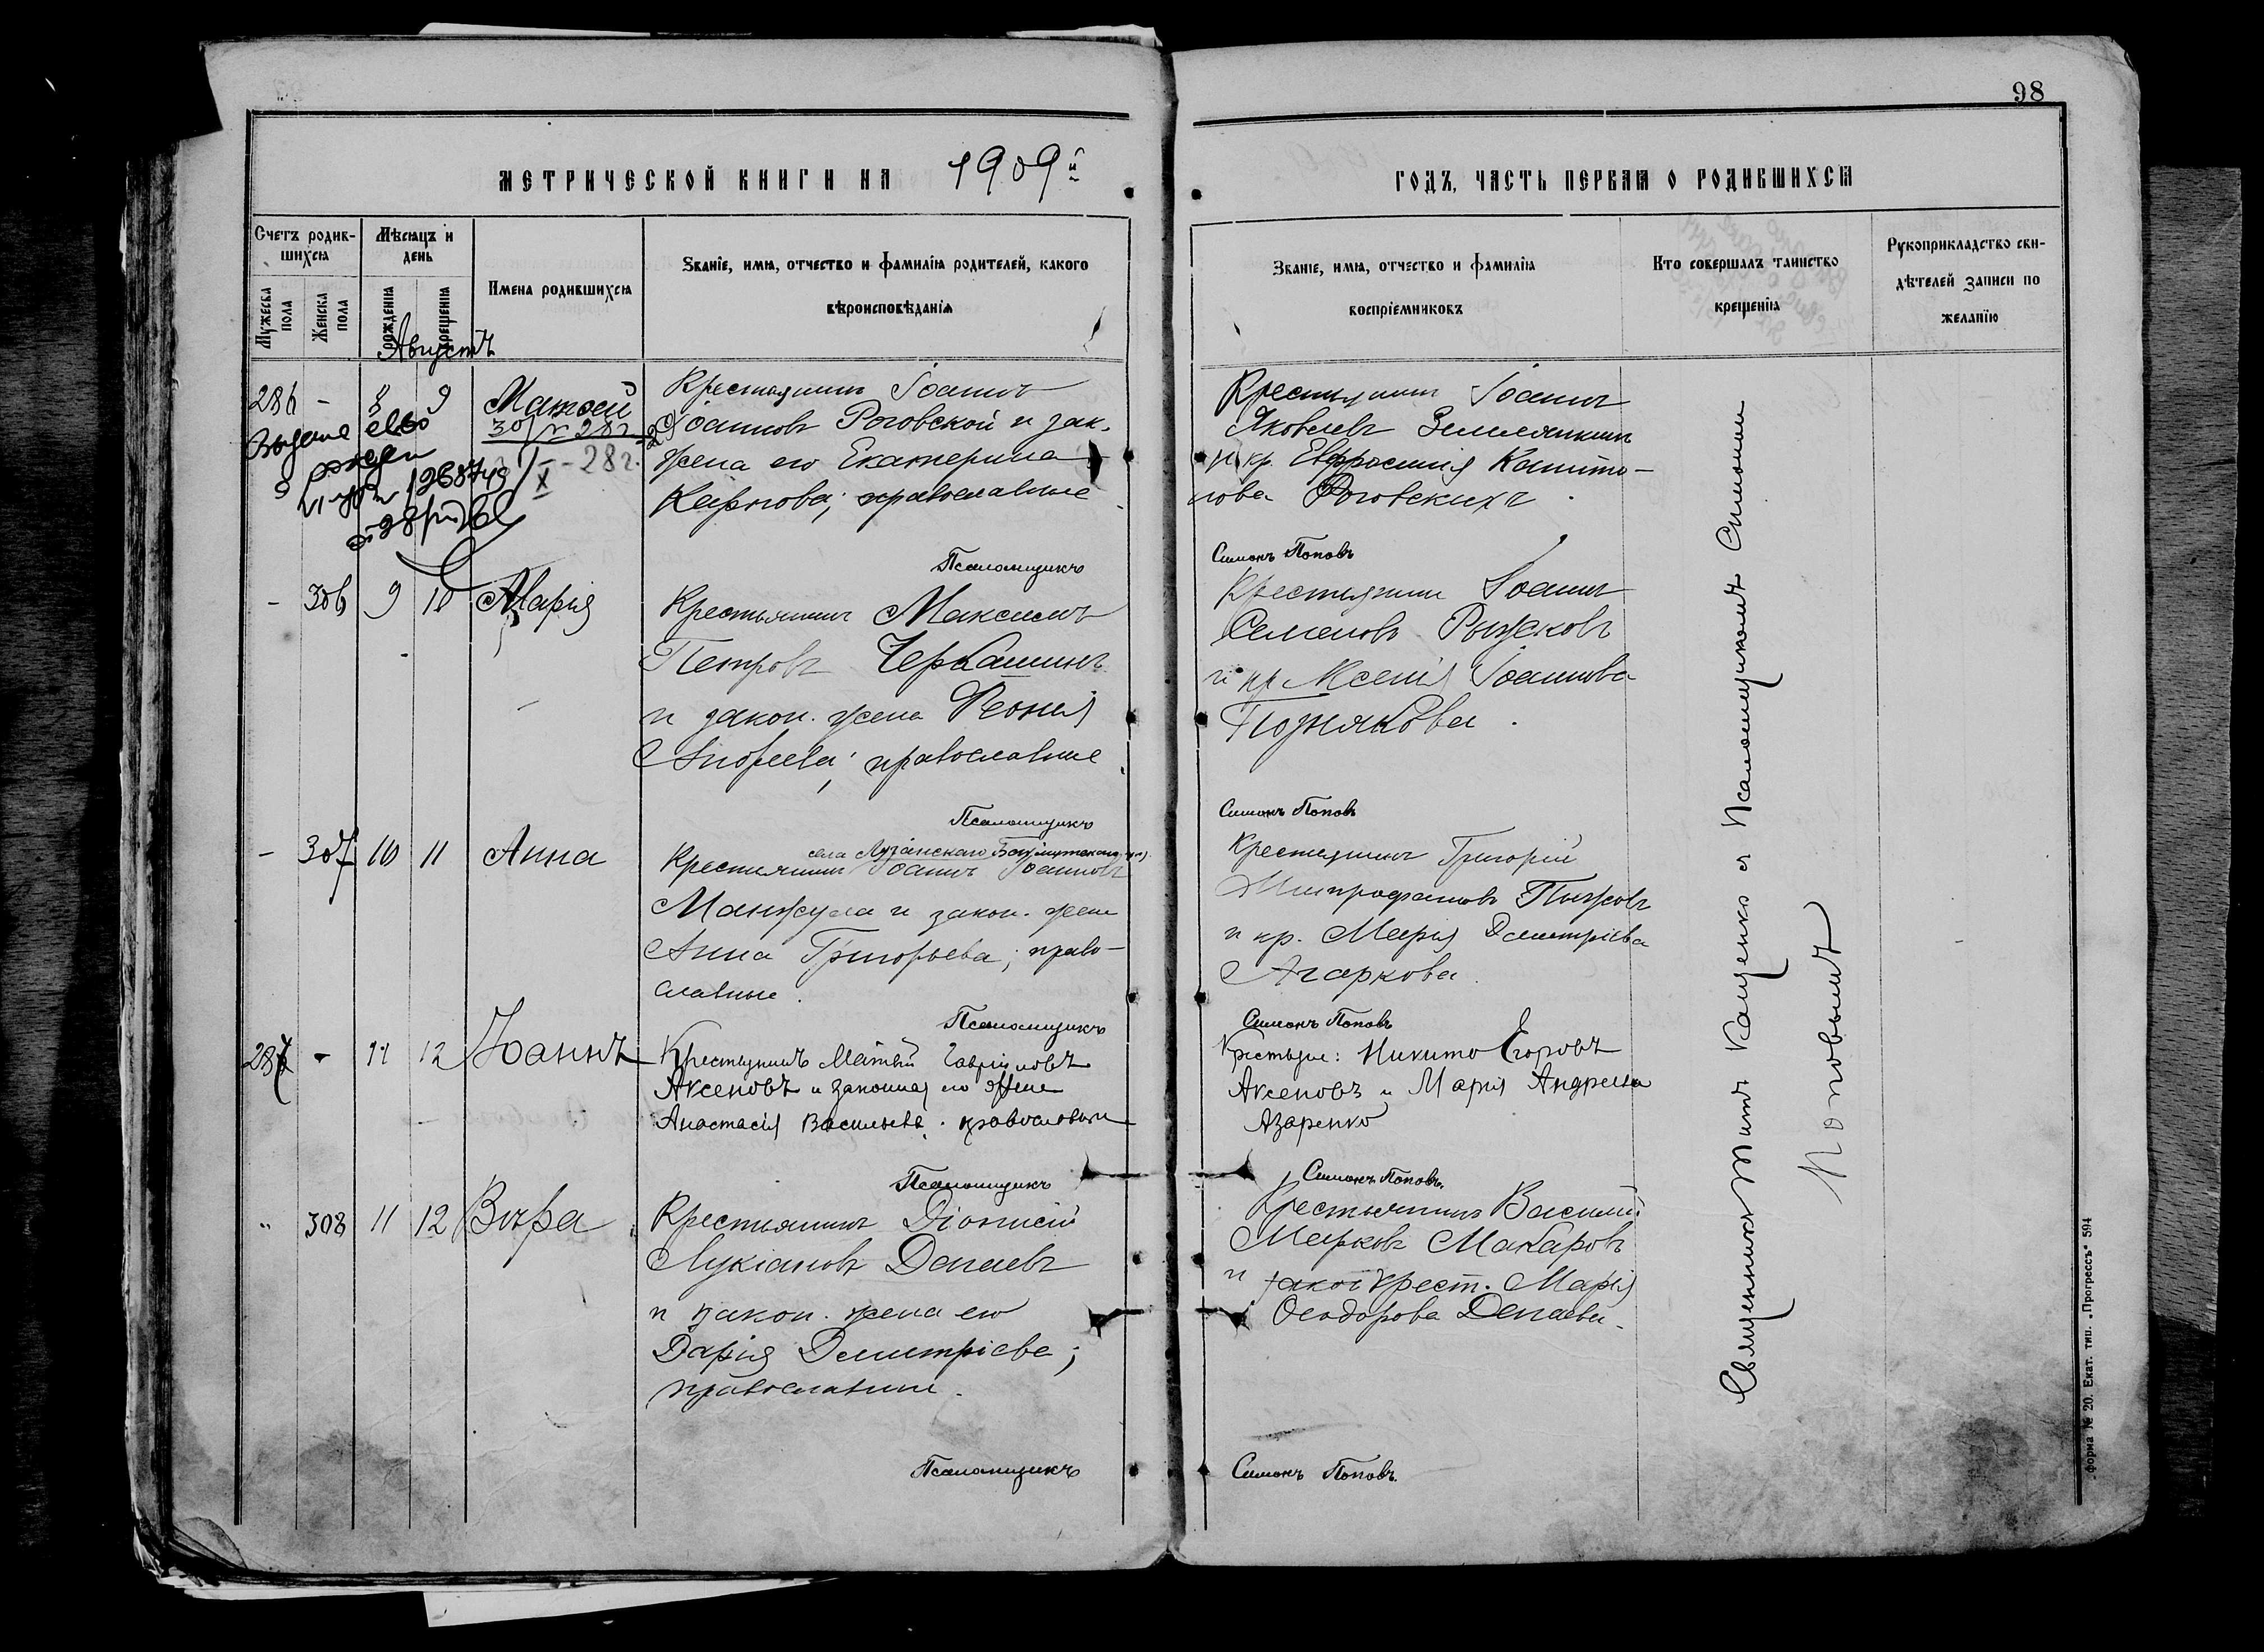 98
МЕТРИЧЕСКОЙ КНИГИ НА 1909й
ГОДЪ, ЧАСТЬ ПЕРВАЯ О РОДИВШИХСЯ
Счетъ родив-
шихся
Мужеска пола
Женска пола
Мѣсяцъ и
день
рожденія
крещенія
Имена родившихся
Званіе, имя, отчество и фамилія родителей, какого
вѣроисповѣданія
Званіе, имя, отчество и фамилія
воспріемниковъ
Кто совершалъ таинство
крещенія
Рукоприкладство сви-
дѣтелей записи по
желанію
Августъ
286 - 8 9 Матѳей
Крестьянинъ Іоаннъ
Іоанновъ Роговской и зак.
жена его Екатерина
Карпова; православные
Крестьянинъ Іоаннъ
Яковлевъ Землянкинъ
и кр. Евфросинія Капито-
нова Роговскихъ.
Псаломщикъ
Симонъ Поповъ
- 306 9 10 Марія
Крестьянинъ Максимъ
Петровъ Черкашинъ
и закон. жена Ѳеонія
Андреева; православные
Крестьянинъ Іоаннъ
Семеновъ Рыжковъ
и кр Ксенія Іоаннова
Познякова.
Псаломщикъ
Симонъ Поповъ
- 307 10 11 Анна
села
Крестьянинъ Іоаннъ Іоанновъ
Манжула и закон. жена
Анна Григорьева; право-
славные.
Крестьянинъ Григорій
Митрофановъ Пыжовъ
и кр. Марія Димитріева
Агаркова.
Псаломщикъ
Симонъ Поповъ
287 - 11 12 Іоаннъ
Крестьянинъ Матвѣй Гавріиловъ
Аксеновъ и законная его жена
Анастасія Васильева. православные
Крестьяне: Никита Егоровъ
Аксеновъ и Марія Андреева
Азаренко
Псаломщикъ
Симонъ Поповъ.
" 308 11 12 Вѣра
Крестьянинъ Діонисій
Лукіановъ Депаевъ
и закон. жена его
Дарія Димитріева;
православные.
Крестьянинъ Василій
Марковъ Макаровъ
и крест. Марія
Ѳеодорова Депаева.
Псаломщикъ
Симонъ Поповъ.
Священникъ Титъ Кащенко и Псаломщикомъ Симономъ
Поповымъ
Форма № 20. Екат. тип. „Прогрессъ“ 594